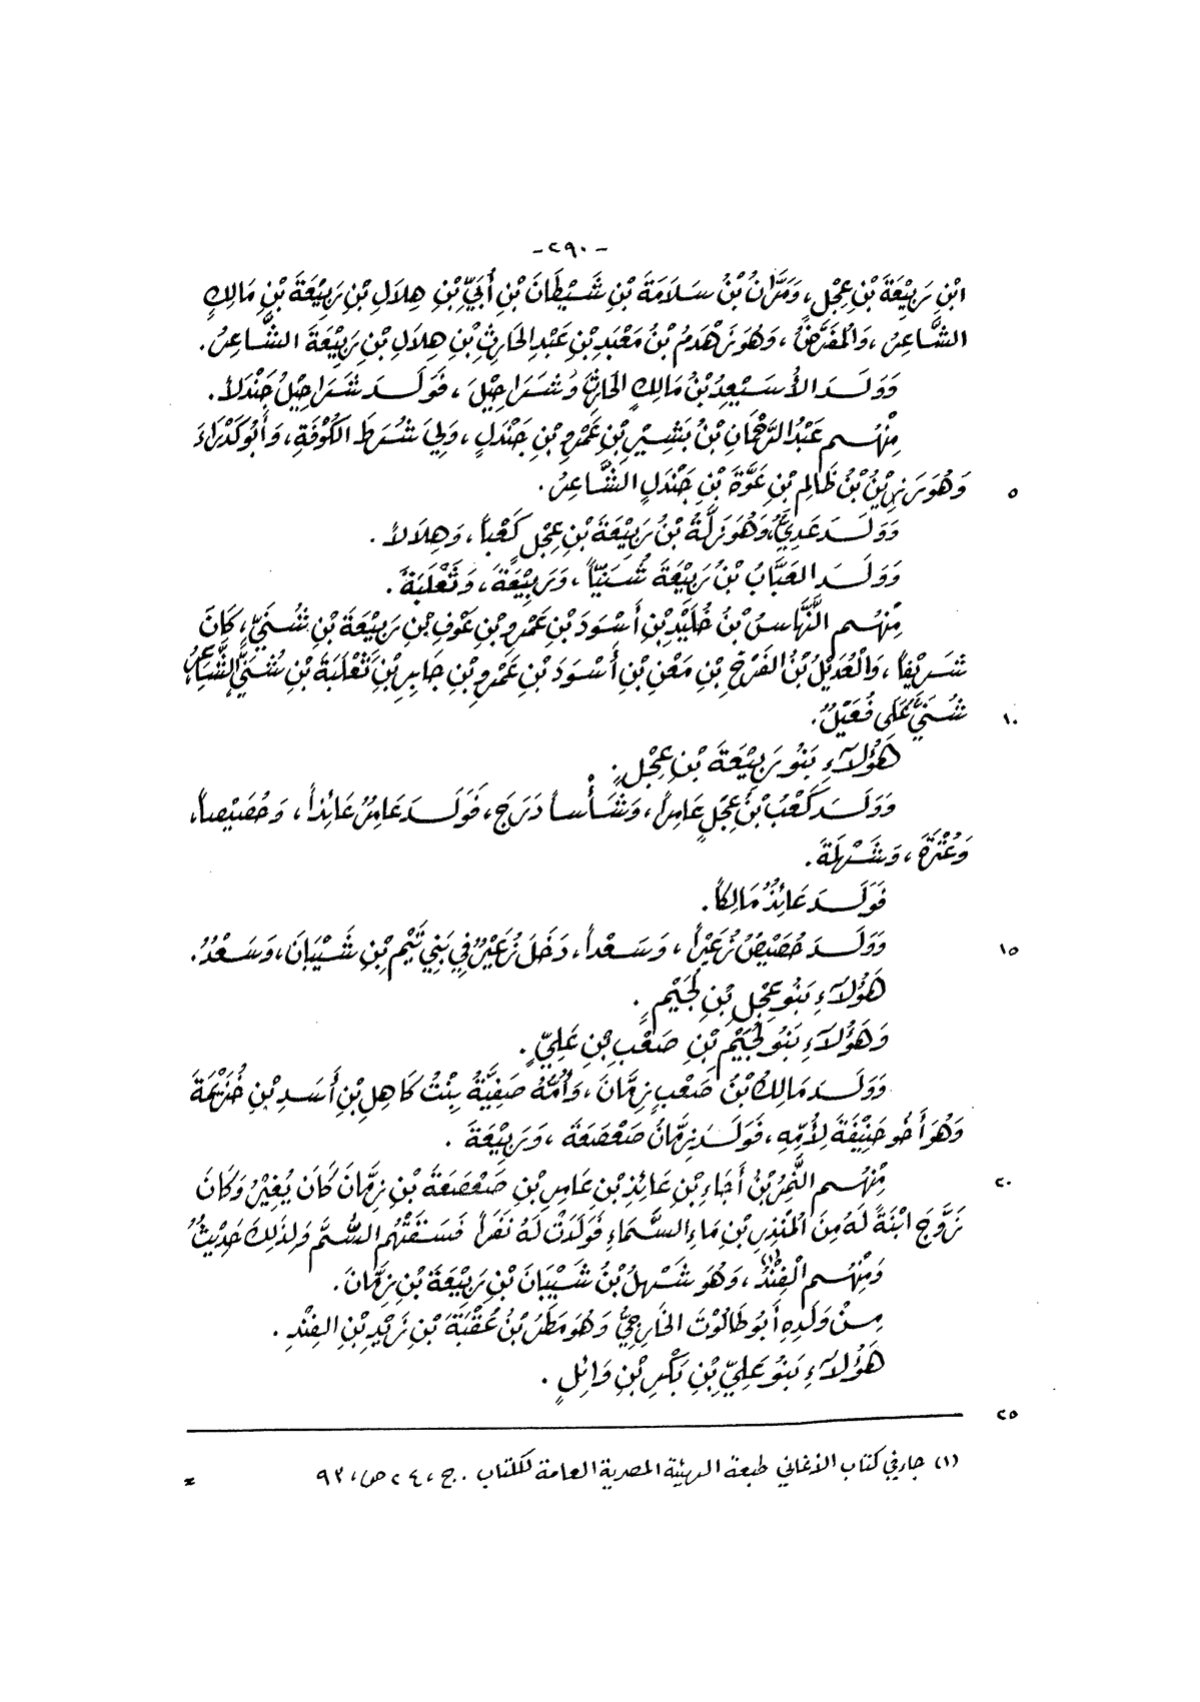 -٢٩٠-
ابْنِ رَبِيْعَةَ بْنِ عِجْلٍ، وَمَرَّانُ بْنُ سَلَامَةَ بْنِ شَيْطَانَ بْنِ أُبَيِّ بْنِ هِلَالِ بْنِ رَبِيْعَةَ بْنِ مَالِكٍ
الشَّاعِرُ، وَالْمَفَرِّضُ، وَهُوَ زَهْدَمُ بْنُ مَعْبَدِ بْنِ عَبْدِ الحَارِثِ بْنِ هِلَالِ بْنِ رَبِيْعَةَ الشَّاعِرُ.
وَوَلَـدَ الأُسَيْعِدُ بْنُ مَالِكٍ الحَارِثَ وَشَرَاحِيْلَ، فَوَلَـدَ شَرَاحِيْلُ جَنْدَلاً.
مِنْهُـم عَبْدُ الرَّحْمَانِ بْنُ بَشِيْرِ بْنِ عَمْرِو بْنِ جَنْدَلٍ، وَلِيَ شُرَطَ الكُوْفَةِ، وَأَبُو كَدْرَاءَ
وَهُوَ رَزِيْنُ بْنُ ظَالِمِ بْنِ عَوَّةَ بْنِ جَنْدَلٍ الشَّاعِرُ. ٥
وَوَلَـدَ عَدِيٌّ، وَهُوَ زَلَّةُ بْنُ رَبِيْعَةَ بْنِ عِجْلٍ كَعْباً، وَهِلَالاً.
وَوَلَـدَ العَبَّابُ بْنُ رَبِيْعَةَ شُنَيّاً، وَرَبِيْعَةَ، وَثَعْلَبَةَ.
مِنْهُـم النَّهَّاسُ بْنُ خُلَيْدِ بْنِ أَسْوَدَ بْنِ عَمْرِو بْنِ عَوْفِ بْنِ رَبِيْعَةَ بْنِ شُنَيٍّ، كَانَ
شَرِيْفاً، وَالْعُدَيْلُ بْنُ الفَرْخِ بْنِ مَعْنِ بْنِ أَسْوَدَ بْنِ عَمْرِو بْنِ جَابِرِ بْنِ ثَعْلَبَةَ بْنِ شُنَيٍّ الشَّاعِرُ،
شُنَيٌّ عَلَى فُعَيْلٍ. ١٠
هَؤُلَاءِ بَنُو رَبِيْعَةَ بْنِ عِجْلٍ.
وَوَلَـدَ كَعْبُ بْنُ عِجْلٍ عَامِراً، وَشَأْساً دَرَجَ، فَوَلَـدَ عَامِرٌ عَائِذاً، وَحُصَيْصاً،
وَعُتْرَةَ، وَشَهْلَةَ.
فَوَلَـدَ عَائِذٌ مَالِكاً.
وَوَلَـدَ حُصَيْصٌ زُعَيْراً، وَسَعْداً، دَخَلَ زُعَيْرٌ فِي بَنِي تَيْمِ بْنِ شَيْبَانَ، وَسَعْدٌ. ١٥
هَؤُلَاءِ بَنُو عِجْلِ بْنِ لُجَيْمٍ.
وَهَؤُلَاءِ بَنُو لُجَيْمِ بْنِ صَعْبِ بْنِ عَلِيٍّ.
وَوَلَـدَ مَالِكُ بْنُ صَعْبٍ زِمَّانَ، وَأُمُّهُ صَفِيَّةُ بِنْتُ كَاهِلِ بْنِ أَسَدِ بْنِ خُزَيْمَةَ
وَهُوَ أَخُو حَنِيْفَةَ لِأُمِّهِ، فَوَلَـدَ زِمَّانُ صَعْصَعَةَ، وَرَبِيْعَةَ.
مِنْهُـم النَّمِرُ بْنُ أَجَاءِ بْنِ عَائِذِ بْنِ عَامِرِ بْنِ صَعْصَعَةَ بْنِ زِمَّانَ كَانَ يُغِيْرُ وَكَانَ ٢٠
زَوَّجَ ابْنَةً لَهُ مِنَ الْمُنْذِرِ بْنِ مَاءِ السَّمَاءِ فَوَلَدَتْ لَهُ نَفَراً فَسَقَتْهُم السُّـمَّ وَلِذَلِكَ حَدِيْثٌ
وَمِنْهُـم الْفِنْدُ(١)، وَهُوَ شَهْلُ بْنُ شَيْبَانَ بْنِ رَبِيْعَةَ بْنِ زِمَّانَ.
مِـنْ وَلَدِهِ أَبُو طَالُوْتَ الخَارِجِيُّ وَهُوَ مَطَرُ بْنُ عُقْبَةَ بْنِ زَيْدِ بْنِ الفِنْدِ.
هَؤُلَاءِ بَنُو عَلِيِّ بْنِ بَكْرِ بْنِ وَائِلٍ.
٢٥
(١) جاء في كتاب الأغاني طبعة الهيئة المصرية العامة للكتاب. ج، ٢٤ ص، ٩٣ =